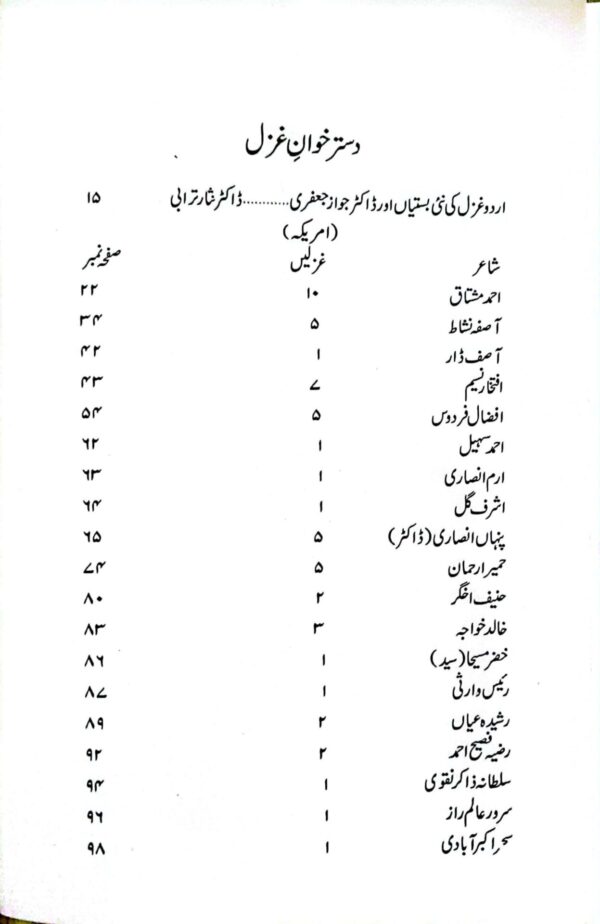 دسترخوانِ غزل
اردو غزل کی نئی بستیاں اور ڈاکٹر جواز جعفری............ڈاکٹر نثار ترابی ۱۵
(امریکہ)
شاعر غزلیں صفحہ نمبر
احمد مشتاق ۱۰ ۲۲
آصفہ نشاط ۵ ۳۴
آصف ڈار ۱ ۴۲
افتخار نسیم ۷ ۴۳
افضال فردوس ۵ ۵۴
احمد سہیل ۱ ۶۲
ارم انصاری ۱ ۶۳
اشرف گل ۱ ۶۴
پنہاں انصاری (ڈاکٹر) ۵ ۶۵
حمیرا رحمان ۵ ۷۴
حنیف اخگر ۲ ۸۰
خالد خواجہ ۳ ۸۳
خضر مسیحا (سید) ۱ ۸۶
رئیس وارثی ۱ ۸۷
رشیدہ عیاں ۲ ۸۹
رضیہ فصیح احمد ۲ ۹۲
سلطانہ ذاکر نقوی ۱ ۹۴
سرور عالم راز ۱ ۹۶
سحرِ اکبر آبادی ۱ ۹۸